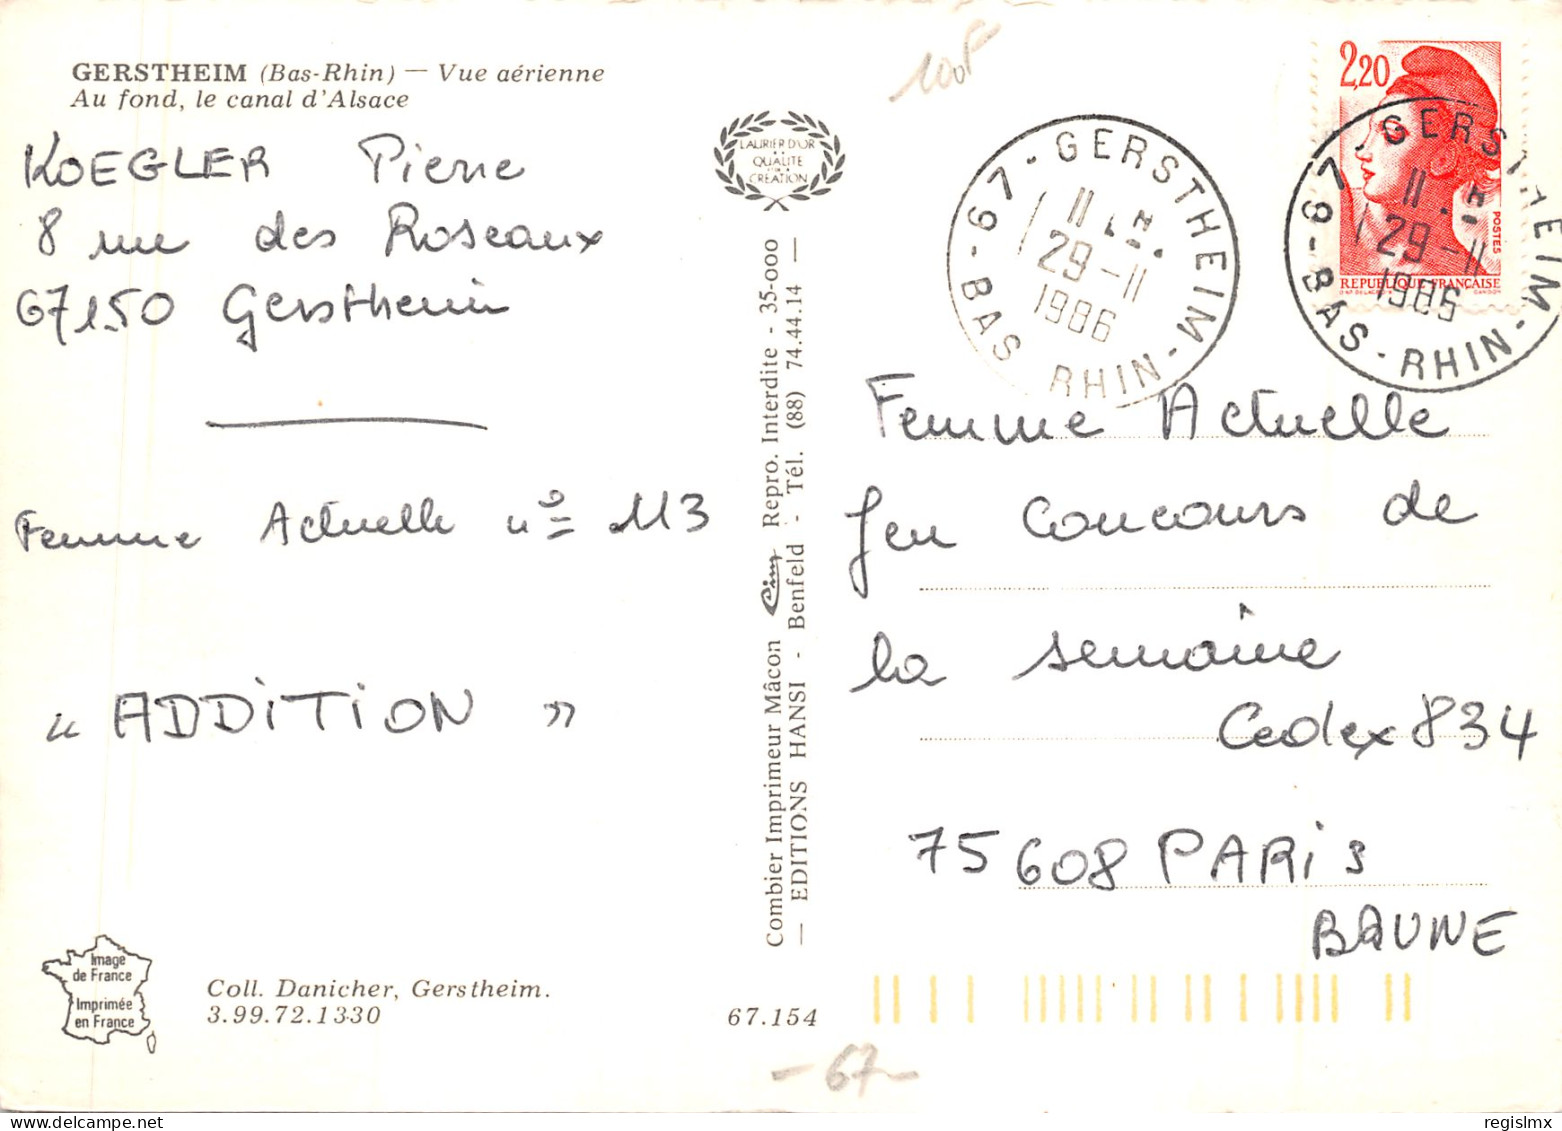 GERSTHEIM (Bas-Rhin) — Vue aérienne
Au fond, le canal d'Alsace
KOEGLER Pierre
8 rue des Roseaux
67150 Gerstheim
Femme Actuelle n° 113
« ADDITION »
Image
de France
Imprimée
en France
Coll. Danicher, Gerstheim.
3.99.72.1330
67.154
- 67 -
LAURIER D'OR
QUALITE
CREATION
Combier Imprimeur Mâcon Cim Repro. Interdite - 35-000
— EDITIONS HANSI - Benfeld - Tél. (88) 74.44.14 —
100F
67 - GERSTHEIM - BAS RHIN -
11
29-11
1986
2,20
POSTES
REPUBLIQUE FRANÇAISE
67 - GERSTHEIM - BAS - RHIN -
11
29-11
1986
Femme Actuelle
Jeu Concours de
la semaine
Cedex 834
75608 PARIS
BRUNE